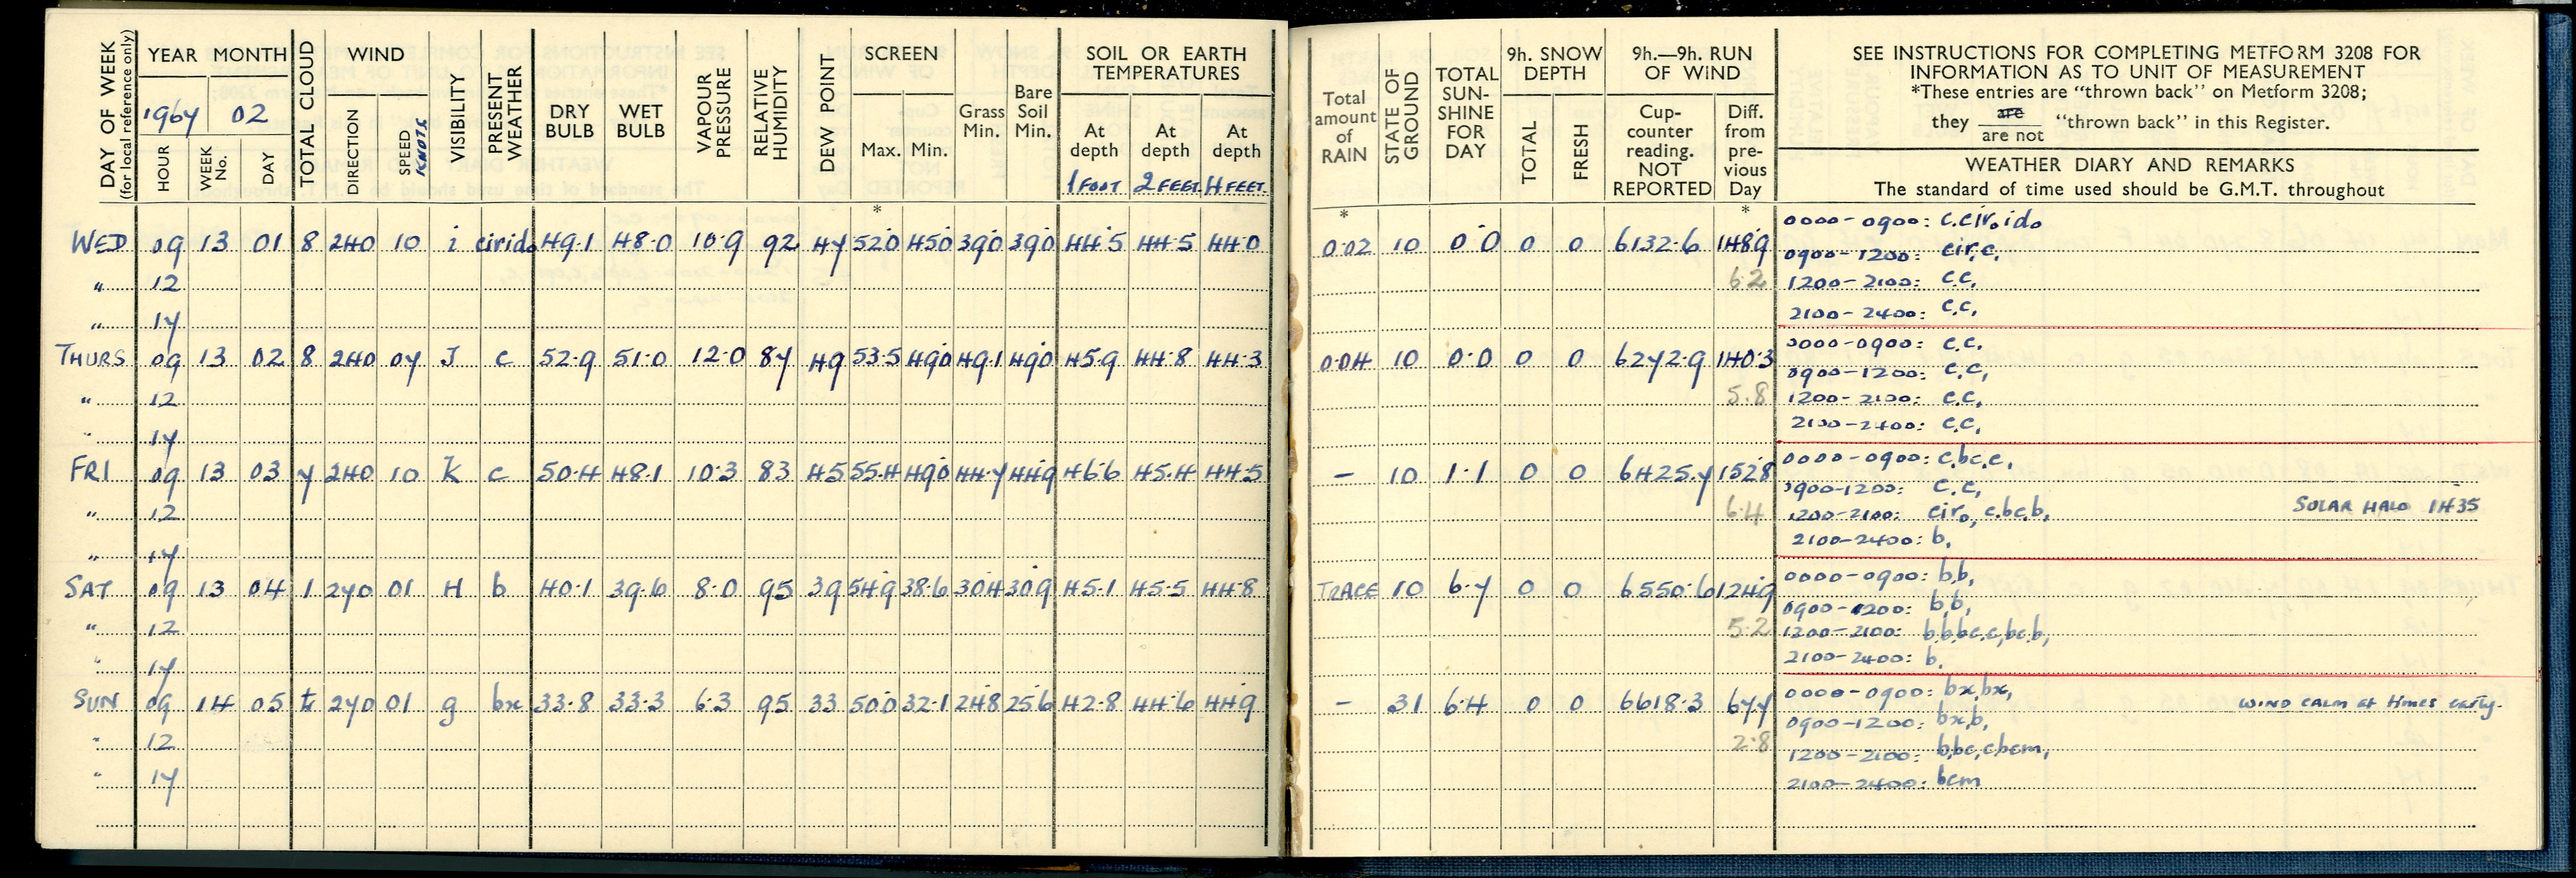 DAY OF WEEK
(for local reference only)
YEAR MONTH
1967 02
HOUR
WEEK No.
DAY
TOTAL CLOUD
WIND
DIRECTION
SPEED KNOTS
VISIBILITY
PRESENT WEATHER
DRY BULB
WET BULB
VAPOUR PRESSURE
RELATIVE HUMIDITY
DEW POINT
SCREEN
Max. Min.
*
Grass Min.
Bare Soil Min.
SOIL OR EARTH
TEMPERATURES
At depth 1 FOOT
At depth 2 FEET
At depth 4 FEET
WED 09 13 01 8 240 10 i cirido 49.1 48.0 10.9 92 47 52.0 45.0 39.0 39.0 44.5 44.5 44.0
" 12
" 17
THURS 09 13 02 8 240 07 J c 52.9 51.0 12.0 87 49 53.5 49.0 49.1 49.0 45.9 44.8 44.3
" 12
" 17
FRI 09 13 03 7 240 10 K c 50.4 48.1 10.3 83 45 55.4 49.0 44.7 44.9 46.6 45.4 44.5
" 12
" 17
SAT 09 13 04 1 270 01 H b 40.1 39.6 8.0 95 39 54.9 38.6 30.4 30.9 45.1 45.5 44.8
" 12
" 17
SUN 09 14 05 270 01 g bx 33.8 33.3 6.3 95 33 50.0 32.1 24.8 25.6 42.8 44.6 44.9
" 12
" 17
Total amount of RAIN
*
STATE OF GROUND
TOTAL SUN-SHINE FOR DAY
9h. SNOW DEPTH
TOTAL
FRESH
9h.—9h. RUN OF WIND
Cup-counter reading. NOT REPORTED
Diff. from pre-vious Day
*
SEE INSTRUCTIONS FOR COMPLETING METFORM 3208 FOR
INFORMATION AS TO UNIT OF MEASUREMENT
*These entries are “thrown back” on Metform 3208;
they are / are not “thrown back” in this Register.
WEATHER DIARY AND REMARKS
The standard of time used should be G.M.T. throughout
0.02 10 0.0 0 0 6132.6 148.9
6.2
0000-0900: c.cir,ido
0900-1200: cir,c,
1200-2100: c.c,
2100-2400: c.c,
0.04 10 0.0 0 0 6272.9 140.3
5.8
0000-0900: c.c,
0900-1200: c.c,
1200-2100: c.c,
2100-2400: c.c,
- 10 1.1 0 0 6425.7 152.8
6.4
0000-0900: c,bc,c,
0900-1200: c.c,
1200-2100: ciro, c.bc.b, SOLAR HALO 1435
2100-2400: b,
TRACE 10 6.7 0 0 6550.6 124.9
5.2
0000-0900: b,b,
0900-1200: b,b,
1200-2100: b,b,bc,c,bc,b,
2100-2400: b,
- 31 6.4 0 0 6618.3 67.7
2.8
0000-0900: bx,bx, WIND CALM at times early.
0900-1200: bx,b,
1200-2100: b,bc,c,bcm,
2100-2400: bcm